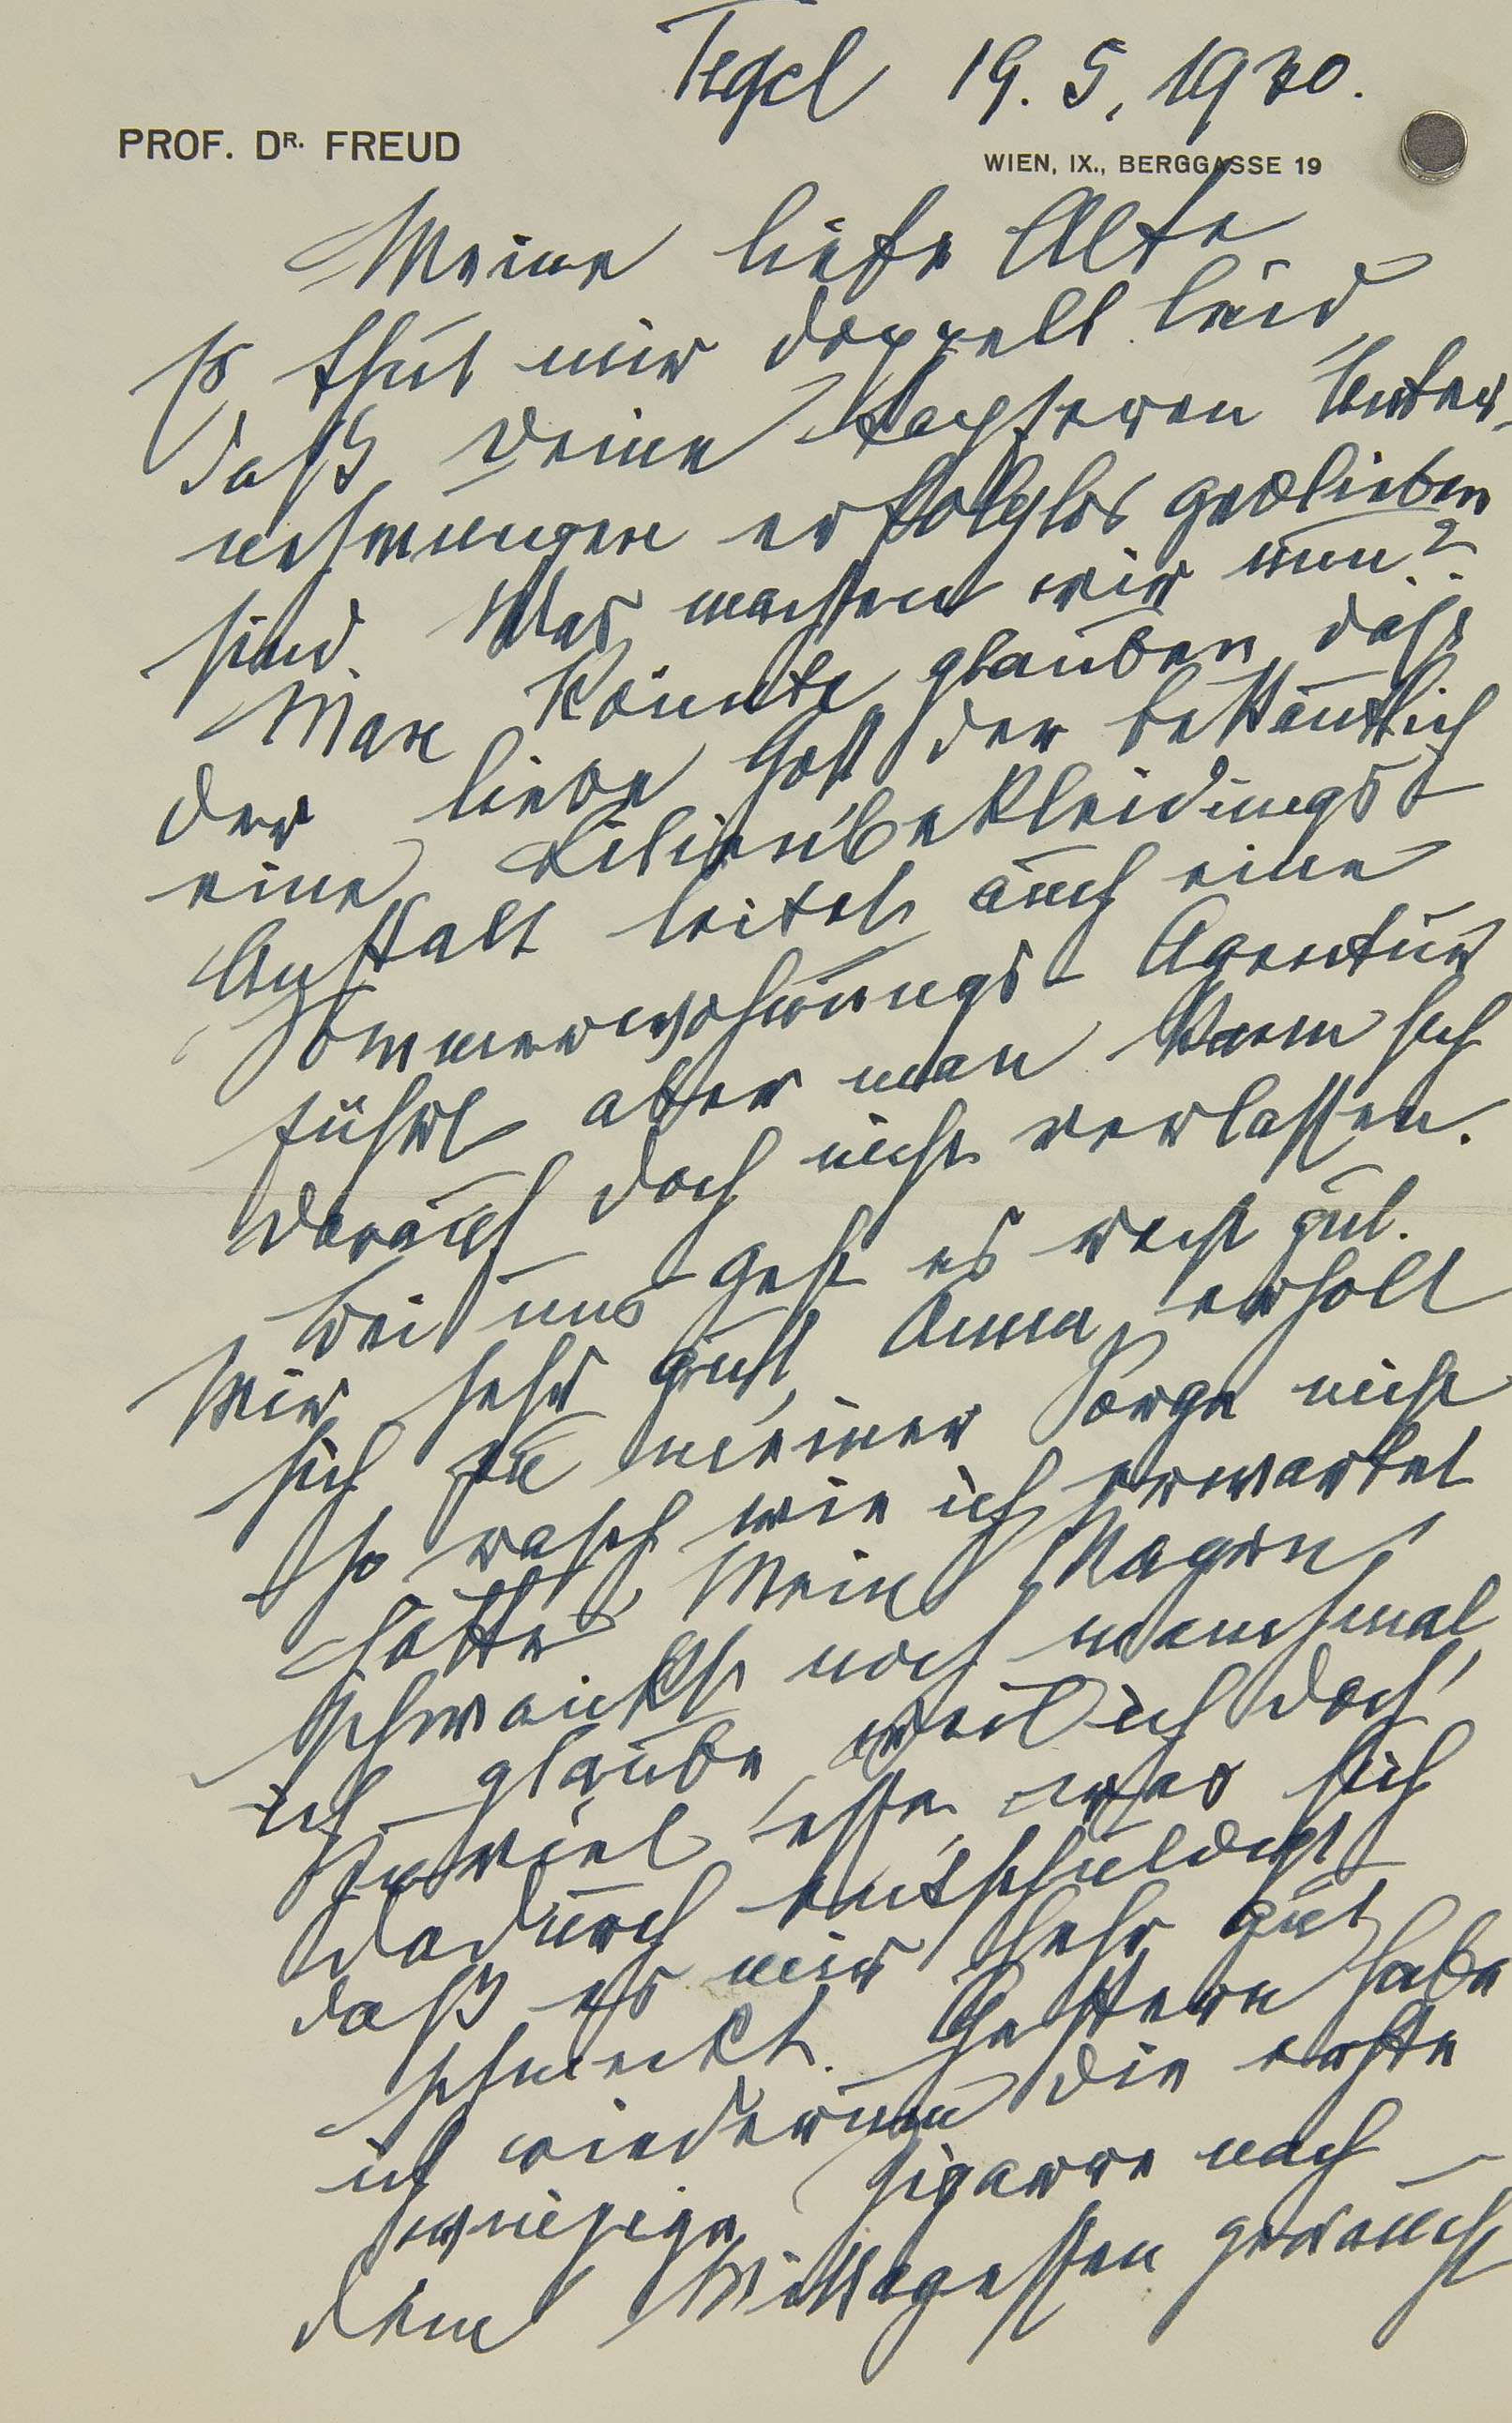 Tegel 19.5.1930.
PROF. DR. FREUD
WIEN, IX., BERGGASSE 19
Meine liebe Alte
Es thut mir doppelt leid,
daß Deine tapferen Unter-
nehmungen erfolglos geblieben
sind. Was machen wir nun?
Man könnte glauben, daß
der liebe Gott der bekanntlich
eine Lilienbekleidungs-
Anstalt leitet, auch eine
Sommerwohnungs-Agentur
führt, aber man kann sich
darauf doch nicht verlassen.
Bei uns geht es recht gut.
Mir sehr gut, Anna erholt
sich zu meiner Sorge nicht
so rasch wie ich erwartet
hätte. Mein Magen
schwankt noch manchmal,
ich glaube weil ich doch
zuviel esse, was sich
dadurch entschuldigt
daß es mir sehr gut
schmeckt. Gestern habe
ich wiederum die erste
winzige Zigarre nach
dem Mittagessen geraucht